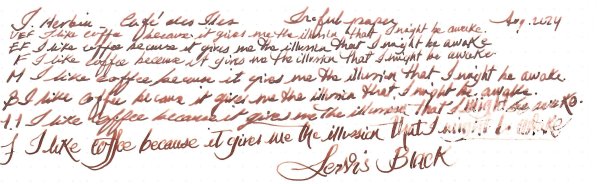 J. Herbin - Café des Iles Aug. 2024
UEF I like coffee because it gives me the illusion that I might be awake.
EF I like coffee because it gives me the illusion that I might be awake
F I like coffee because it gives me the illusion that I might be awake
M I like coffee because it gives me the illusion that I might be awake
B I like coffee because it gives me the illusion that I might be awake.
1.1 I like coffee because it gives me the illusion that I might be awake.
I like coffee because it gives me the illusion that I might be awake
Lewis Black